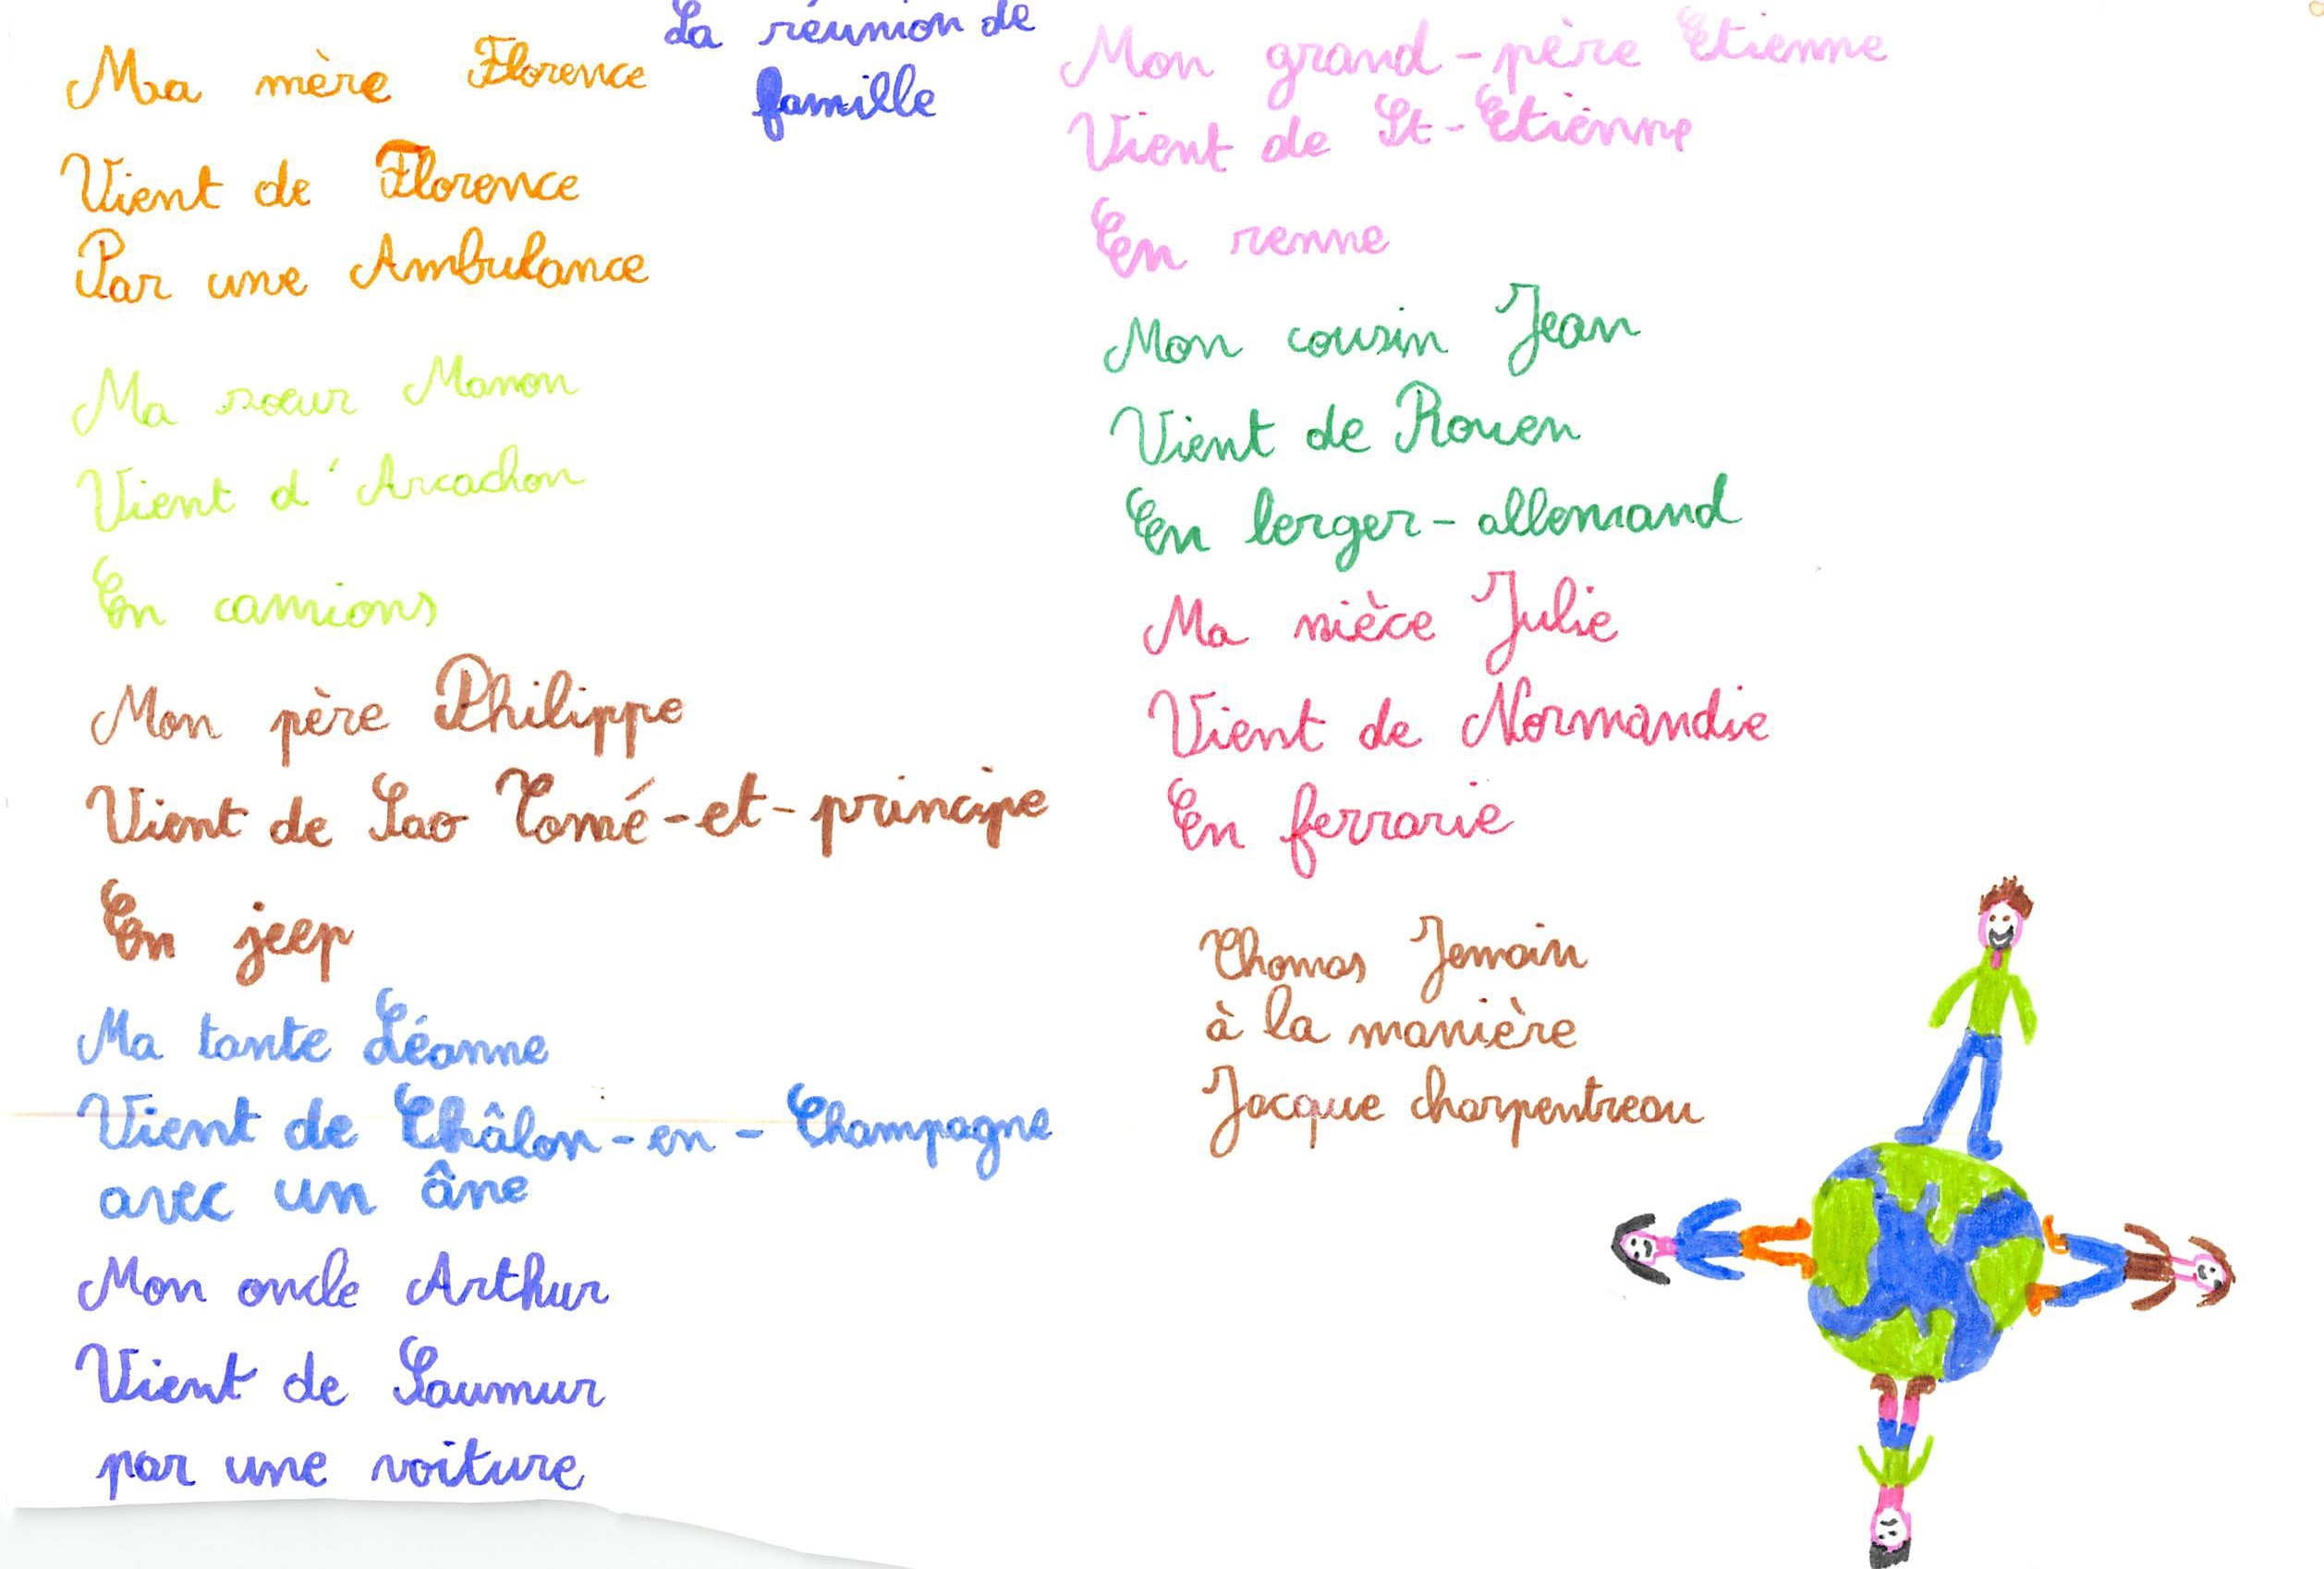 La réunion de
famille
Ma mère Florence
Vient de Florence
Par une Ambulance
Ma sœur Manon
Vient d'Arcachon
En camions
Mon père Philippe
Vient de Sao Tomé-et-principe
En jeep
Ma tante Léanne
Vient de Châlon-en-Champagne
avec un âne
Mon oncle Arthur
Vient de Saumur
par une voiture
Mon grand-père Etienne
Vient de St-Etienne
En renne
Mon cousin Jean
Vient de Rouen
En berger-allemand
Ma nièce Julie
Vient de Normandie
En ferrarie
Thomas Jemain
à la manière
Jacque charpentreau